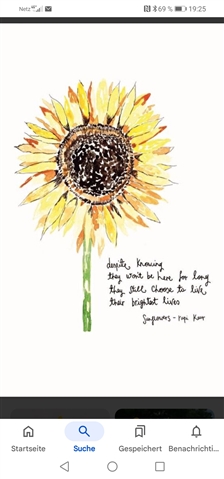 Netz 4G 69 % 19:25
despite knowing
they won't be here for long
they still choose to live
their brightest lives
Sunflowers - rupi kaur
Startseite Suche Gespeichert Benachrichti...